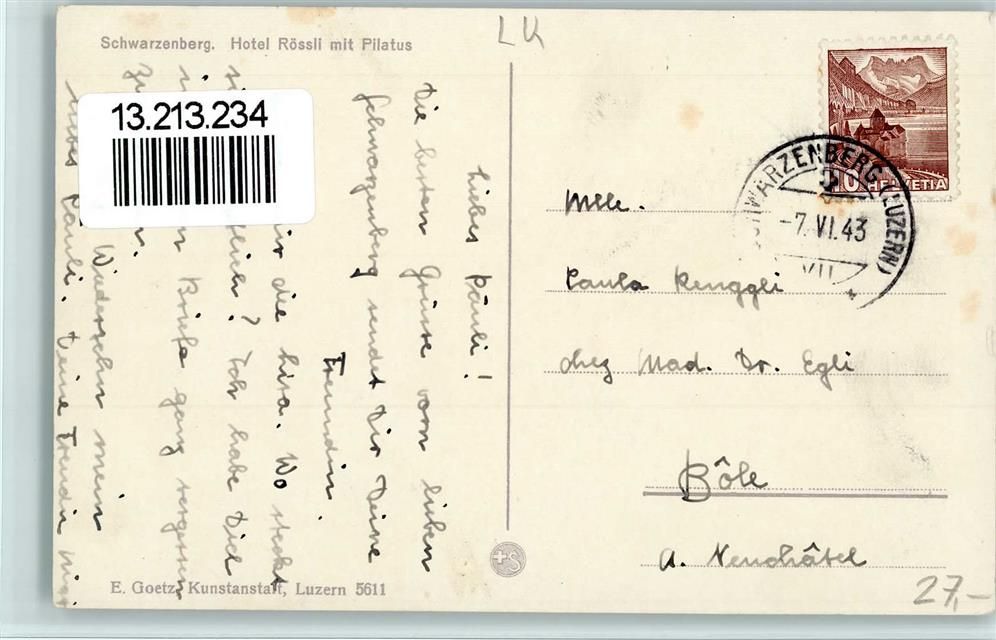 LU
Schwarzenberg. Hotel Rössli mit Pilatus
13.213.234
Liebes Päuli!
Die besten Grüsse vom lieben
Schwarzenberg sendet Dir Deine
Freundin.
die Lisa. Wo steckt
? Ich habe Dich
Briefe ganz vergessen
Wiedersehn mein
liebes Päuli. Deine Freundin
E. Goetz, Kunstanstalt, Luzern 5611
HELVETIA
10
SCHWARZENBERG (LUZERN)
-7.VI.43
VII
Mlle.
Paula Renggli
chez Mad. Dr. Egli
Bôle
a. Neuchâtel
27,-